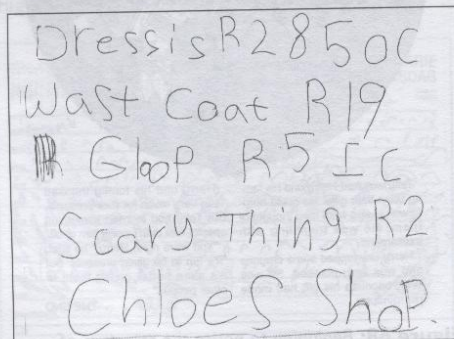 Dressis R2850c
Wast Coat R19
Gloop R5 1c
Scary Thing R2
Chloes Shop.